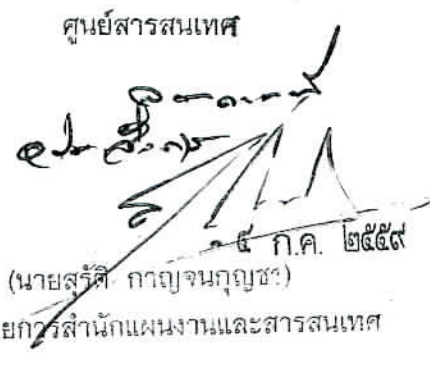 ศูนย์สารสนเทศ
๕ ก.ค. ๒๕๕๙
(นายสุรัติ กาญจนกุญชร)
ยการสำนักแผนงานและสารสนเทศ